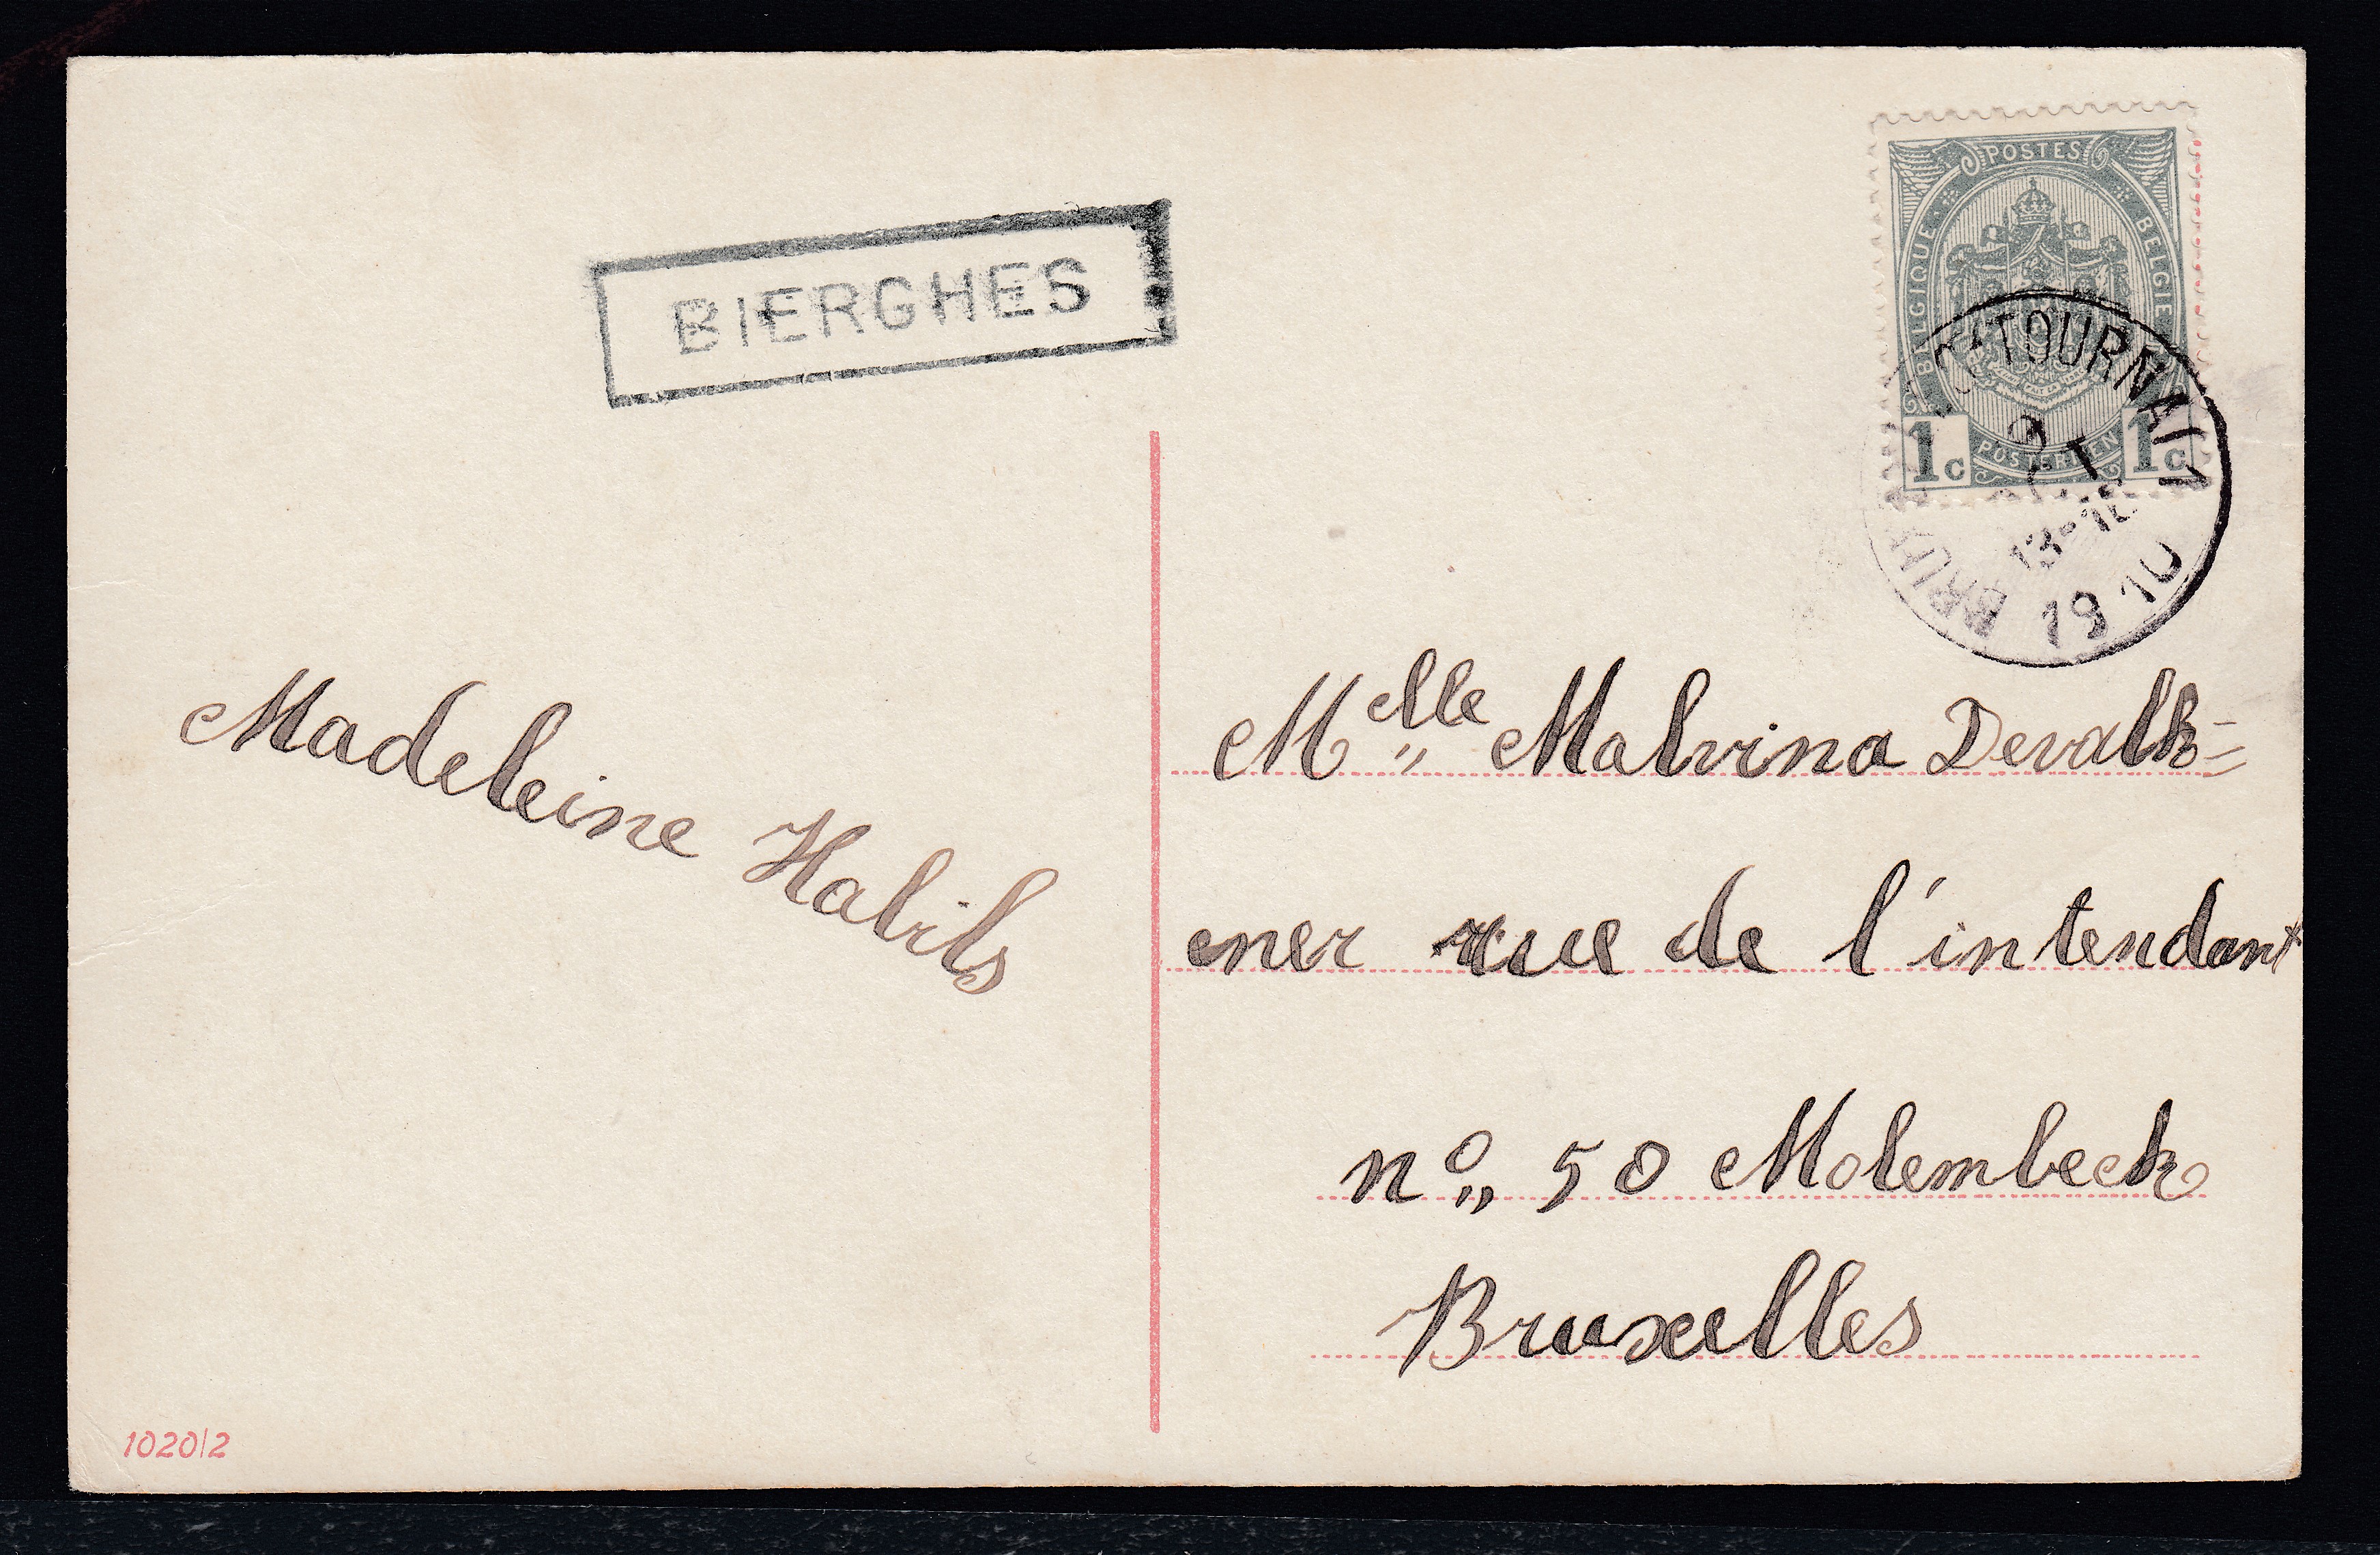 BIERGHES
POSTES
BELGIQUE BELGIE
POSTERIJEN
1c 1c
TOURNAI
13-
1910
Madeleine Habils
Melle Malvina Devalk=
ener rue de l'intendant
no 50 Molembeek
Bruxelles
1020/2